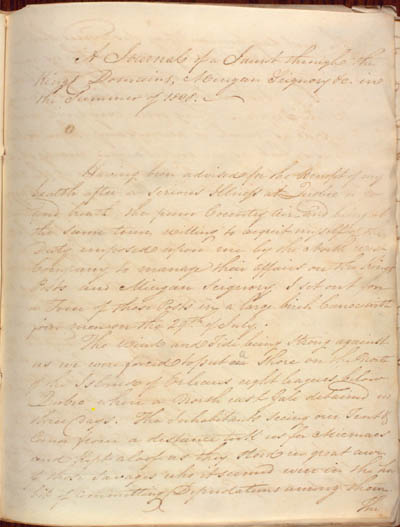 A Journal of a Jaunt through the
King's Domains, Mingan Seignory &c. in
the Summer of 1808.
Having been advised for the benefit of my
health after a serious illness at Quebec to
and breath the pure Country Air and being at
the same time willing to acquit myself of the
Duty imposed upon me by the North West
Company to manage their affairs on the King's
Posts and Mingan Seignory, I set out for
a Tour of those Posts in a large birch Canoe with
four men on the 29th of July.
The Wind and Tide being strong against
us we were forced to put on Shore on the North
of the Island of Orleans eight leagues below
Quebec where a North East Gale detained us
three days. The Inhabitants seeing our Tent &
Canoe from a distance took us for Micmacs
and kept aloof as they stand in great awe
of those Savages who it seems were in the ha
bit of committing Depredations among them
The